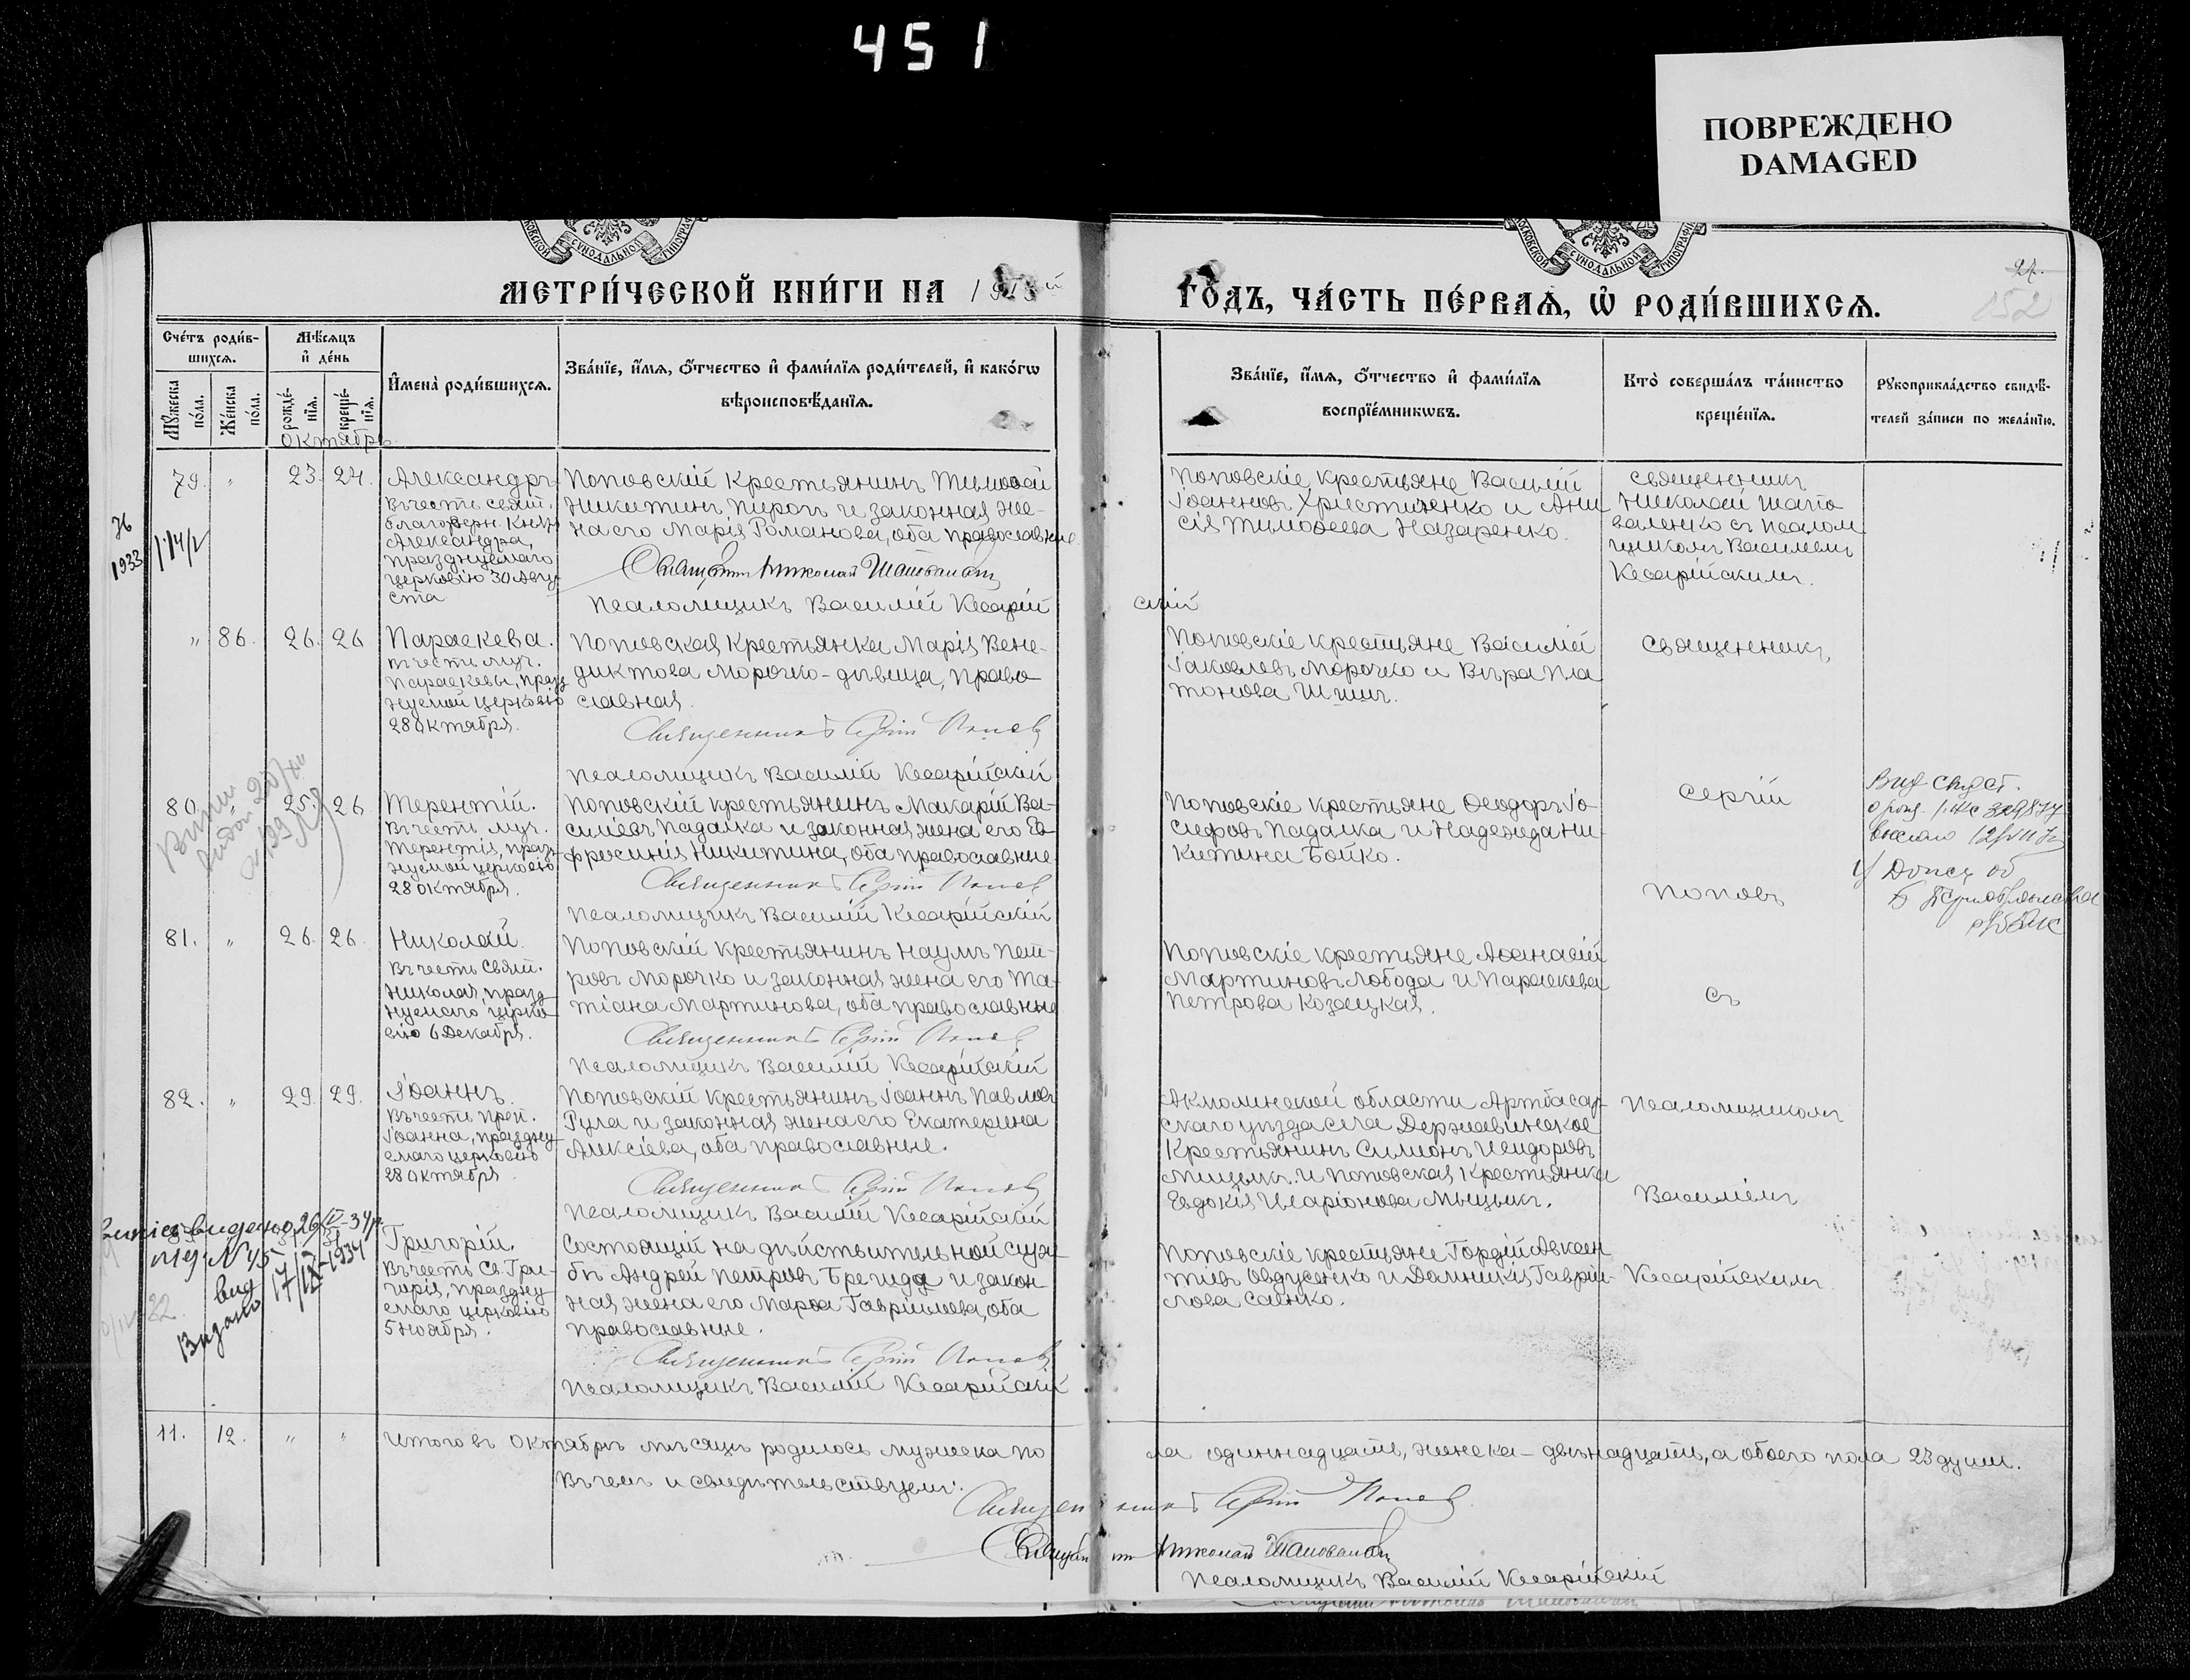 451
ПОВРЕЖДЕНО
DAMAGED
МЕТРИ́ЧЕСКОЙ КНИ́ГИ НА 1913й
ГО́ДЪ, ЧА́СТЬ ПЕ́РВАѦ, Ѡ҆ РОДИ́ВШИХСѦ.
24.
152
Сче́тъ роди́в-
шихсѧ.
Мѣ́сѧцъ
и҆ де́нь
И҆мена̀ роди́вшихсѧ.
Зва́нїе, и҆́мѧ, ѻ҆́тчество и҆ фами́лїѧ роди́телей, и҆ како́гѡ
вѣроисповѣ́данїѧ.
Мꙋ́жеска по́ла.
Же́нска по́ла.
рожде́-нїѧ.
креще́-нїѧ.
Зва́нїе, и҆́мѧ, ѻ҆́тчество и҆ фами́лїѧ
воспрїе́мникѡвъ.
Кто̀ соверша́лъ та́инство
креще́нїѧ.
Рꙋкоприкла́дство свидѣ́-
телей за́писи по жела́нїю.
Октябрь
79. " 23. 24.
Александръ
Въ честь свят.
благоверн. Князя
Александра,
празднуемаго
церковію 30 Авгу-
ста
Поповскій крестьянинъ Тимоѳей
Никитинъ Пирогъ и законная же-
на его Марія Романова, оба православные
Священникъ Николай Шаповаленко
Псаломщикъ Василій Кесарій
скій
Поповскіе крестьяне Василій
Іоанновъ Христиненко и Ани
сія Тимоѳеева Назаренко.
священникъ
Николай Шапо
валенко съ псалом
щикомъ Василіемъ
Кесарійскимъ.
1933
" 86. 26. 26.
Параскева.
въ честь муч.
Параскевы, празд
нуемой церковію
28 октября.
Поповская крестьянка Марія Вене-
диктова Морочко - дѣвица, право
славная.
Священникъ Сергій Поповъ
Псаломщикъ Василій Кесарійскій
Поповскіе крестьяне Василій
Іаковлевъ Морочко и Вѣра Пла
тонова Шишъ.
Священникъ
80. " 25. 26.
Терентій.
Въ честь муч.
Терентія, празд-
нуемой церковію
28 октября.
Поповскій крестьянинъ Макарій Ва-
силіевъ Падалка и законная жена его Ев-
фросинія Никитина, оба православные.
Священникъ Сергій Поповъ
Псаломщикъ Василій Кесарійскій
Поповскіе крестьяне Ѳеодоръ Іо
сифовъ Падалка и Надежда Ни-
китина Бойко.
Сергій
Поповъ
81. " 26. 26.
Николай.
Въ честь Свят.
Николая, празд
нуемаго церко
вію 6 Декабря.
Поповскій крестьянинъ Наумъ Пет-
ровъ Морочко и законная жена его Та-
тіана Мартинова, оба православные
Священникъ Сергій Поповъ
Псаломщикъ Василій Кесарійскій
Поповскіе крестьяне Аѳанасій
Мартиновъ Лобода и Параскева
Петрова Козацкая.
съ
82. " 29. 29.
Іоаннъ.
Въ честь преп.
Іоанна, праздну
емаго церковію
28 октября
Поповскій крестьянинъ Іоаннъ Павловъ
Рула и законная жена его Екатерина
Алексіева, оба православные.
Священникъ Сергій Поповъ
Псаломщикъ Василій Кесарійскій
Акмолинской области Артбасар-
скаго уѣзда села Державинское
Крестьянинъ Симеонъ Исидоровъ
Мищикъ и Поповская крестьянка
Евдокія Иларіонова Мыцыкъ.
псаломщикомъ
Василіемъ
Григорій.
Въ честь Св. Гри-
горія, праздну
емаго церковію
5 ноября.
Состоящій на дѣйствительной служ-
бѣ Андрей Петровъ Брегида и закон
ная жена его Марѳа Гавриилова, оба
православные.
Священникъ Сергій Поповъ
Псаломщикъ Василій Кесарійскій
Поповскіе крестьяне Гордій Авксен
тіевъ Овдусенко и Домникія Гаврии-
лова Саенко.
Кесарійскимъ
Видано 17/IX-1934
11. 12. " "
Итого въ Октябрѣ мѣсяцѣ родилось мужеска по
ла одиннадцать, женска - двѣнадцать, а обоего пола 23 души.
Въ чемъ и свидѣтельствуемъ:
Священникъ Сергій Поповъ
Священникъ Николай Шаповаленко
Псаломщикъ Василій Кесарійскій